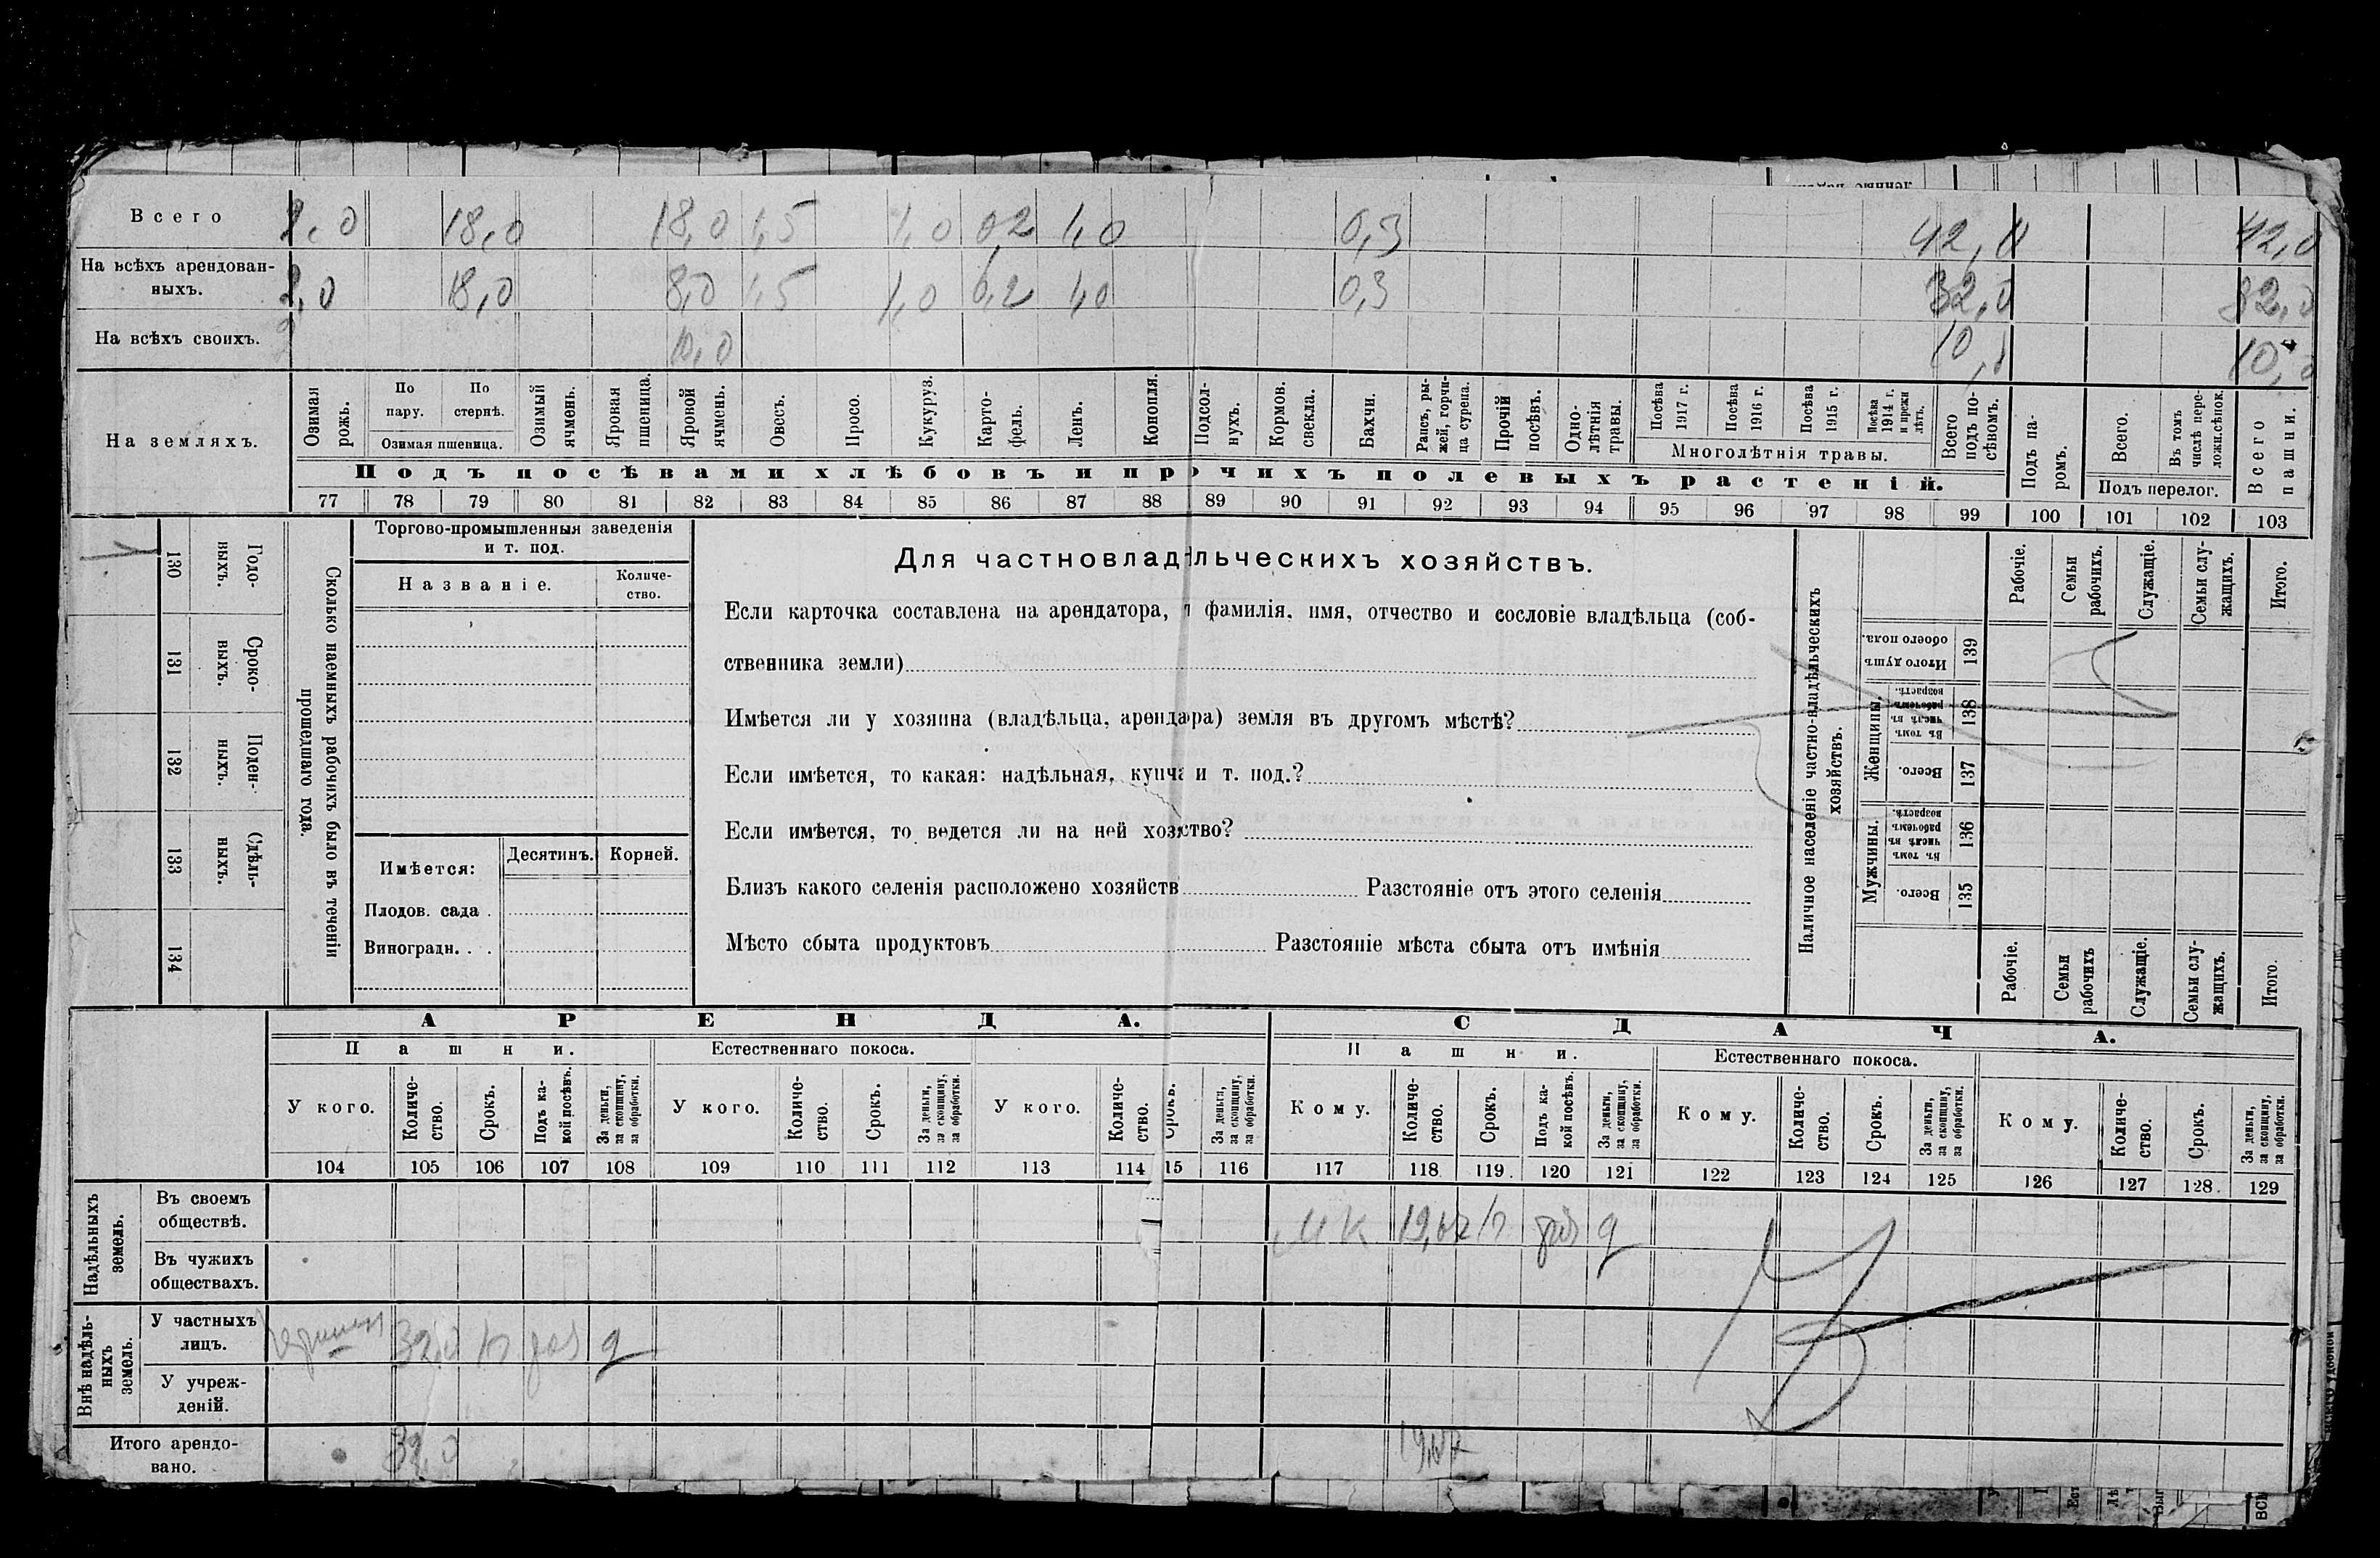 Всего 2,0 18,0 18,0 1,5 1,0 0,2 1,0 0,3 42,0 42,0
На всѣхъ арендован-
ныхъ. 2,0 18,0 8,0 1,5 1,0 0,2 1,0 0,3 32,0 32,0
На всѣхъ своихъ. 10,0 10,0 10,0
На земляхъ.
Озимая рожь.
По пару.
По стернѣ.
Озимая пшеница.
Озимый ячмень.
Яровая пшеница.
Яровой ячмень.
Овесъ.
Просо.
Кукуруз.
Карто-
фель.
Ленъ.
Конопля.
Подсол-
нухъ.
Кормов.
свекла.
Бахчи.
Рапсъ, ры-
жей, горчи-
ца сурепа.
Прочій
посѣвъ.
Одно-
лѣтнія
травы.
Посѣва
1917 г.
Посѣва
1916 г.
Посѣва
1915 г.
Посѣва
1914 г.
и прежн
лѣтъ.
Многолѣтнія травы.
Всего
подъ по-
сѣвомъ.
Подъ па-
ромъ.
Всего.
Въ томъ
числѣ пере-
ложн.сѣнок.
Подъ перелог.
Всего
пашни.
Подъ посѣвами хлѣбовъ и прочихъ полевыхъ растеній.
77 78 79 80 81 82 83 84 85 86 87 88 89 90 91 92 93 94 95 96 97 98 99 100 101 102 103
130 Годо-
ныхъ.
131 Сроко-
ныхъ.
132 Поден-
ныхъ.
133 Сдѣль-
ныхъ.
134
Сколько наемныхъ рабочихъ было въ теченіи
прошедшаго года.
Торгово-промышленныя заведенія
и т. под.
Названіе.
Количе-
ство.
Имѣется:
Десятинъ.
Корней.
Плодов. сада .
Виноградн. . .
Для частновладѣльческихъ хозяйствъ.
Если карточка составлена на арендатора, фамилія, имя, отчество и сословіе владѣльца (соб-
ственника земли)
Имѣется ли у хозяина (владѣльца, аренда ра) земля въ другомъ мѣстѣ?
Если имѣется, то какая: надѣльная, купча и т. под.?
Если имѣется, то ведется ли на ней хозяйство?
Близъ какого селенія расположено хозяйств
Разстояніе отъ этого селенія
Мѣсто сбыта продуктовъ
Разстояніе мѣста сбыта отъ имѣнія
Наличное населеніе частно-владѣльческихъ
хозяйствъ.
Рабочіе.
Семьи
рабочихъ.
Служащіе.
Семьи слу-
жащихъ.
Итого.
Итого душъ
обоего пола.
139
Женщины.
Въ томъ
числѣ въ
рабочемъ
возрастѣ.
138
Всего.
137
Мужчины.
Въ томъ
числѣ въ
рабочемъ
возрастѣ.
136
Всего.
135
Рабочіе.
Семьи
рабочихъ
Служащіе.
Семьи слу-
жащихъ.
Итого.
АРЕНДА.
СДАЧА.
Пашни.
Естественнаго покоса.
Пашни.
Естественнаго покоса.
У кого.
Количе-
ство.
Срокъ.
Подъ ка-
кой посѣвъ.
За деньги,
за скопщину,
за обработки.
У кого.
Количе-
ство.
Срокъ.
За деньги,
за скопщину,
за обработки.
У кого.
Количе-
ство.
Срокъ.
За деньги,
за скопщину,
за обработки.
Кому.
Количе-
ство.
Срокъ.
Подъ ка-
кой посѣвъ.
За деньги,
за скопщину,
за обработки.
Кому.
Количе-
ство.
Срокъ.
За деньги,
за скопщину,
за обработки.
Кому.
Количе-
ство.
Срокъ.
За деньги,
за скопщину,
за обработки.
104 105 106 107 108 109 110 111 112 113 114 15 116 117 118 119. 120 121 122 123 124 125 126 127 128. 129
Надѣльныхъ
земель.
Въ своемъ
обществѣ.
Въ чужихъ
обществахъ.
Внѣ надѣль-
ныхъ
земель.
У частныхъ
лицъ. 32,0
У учреж-
деній.
Итого арендо-
вано. 32,0